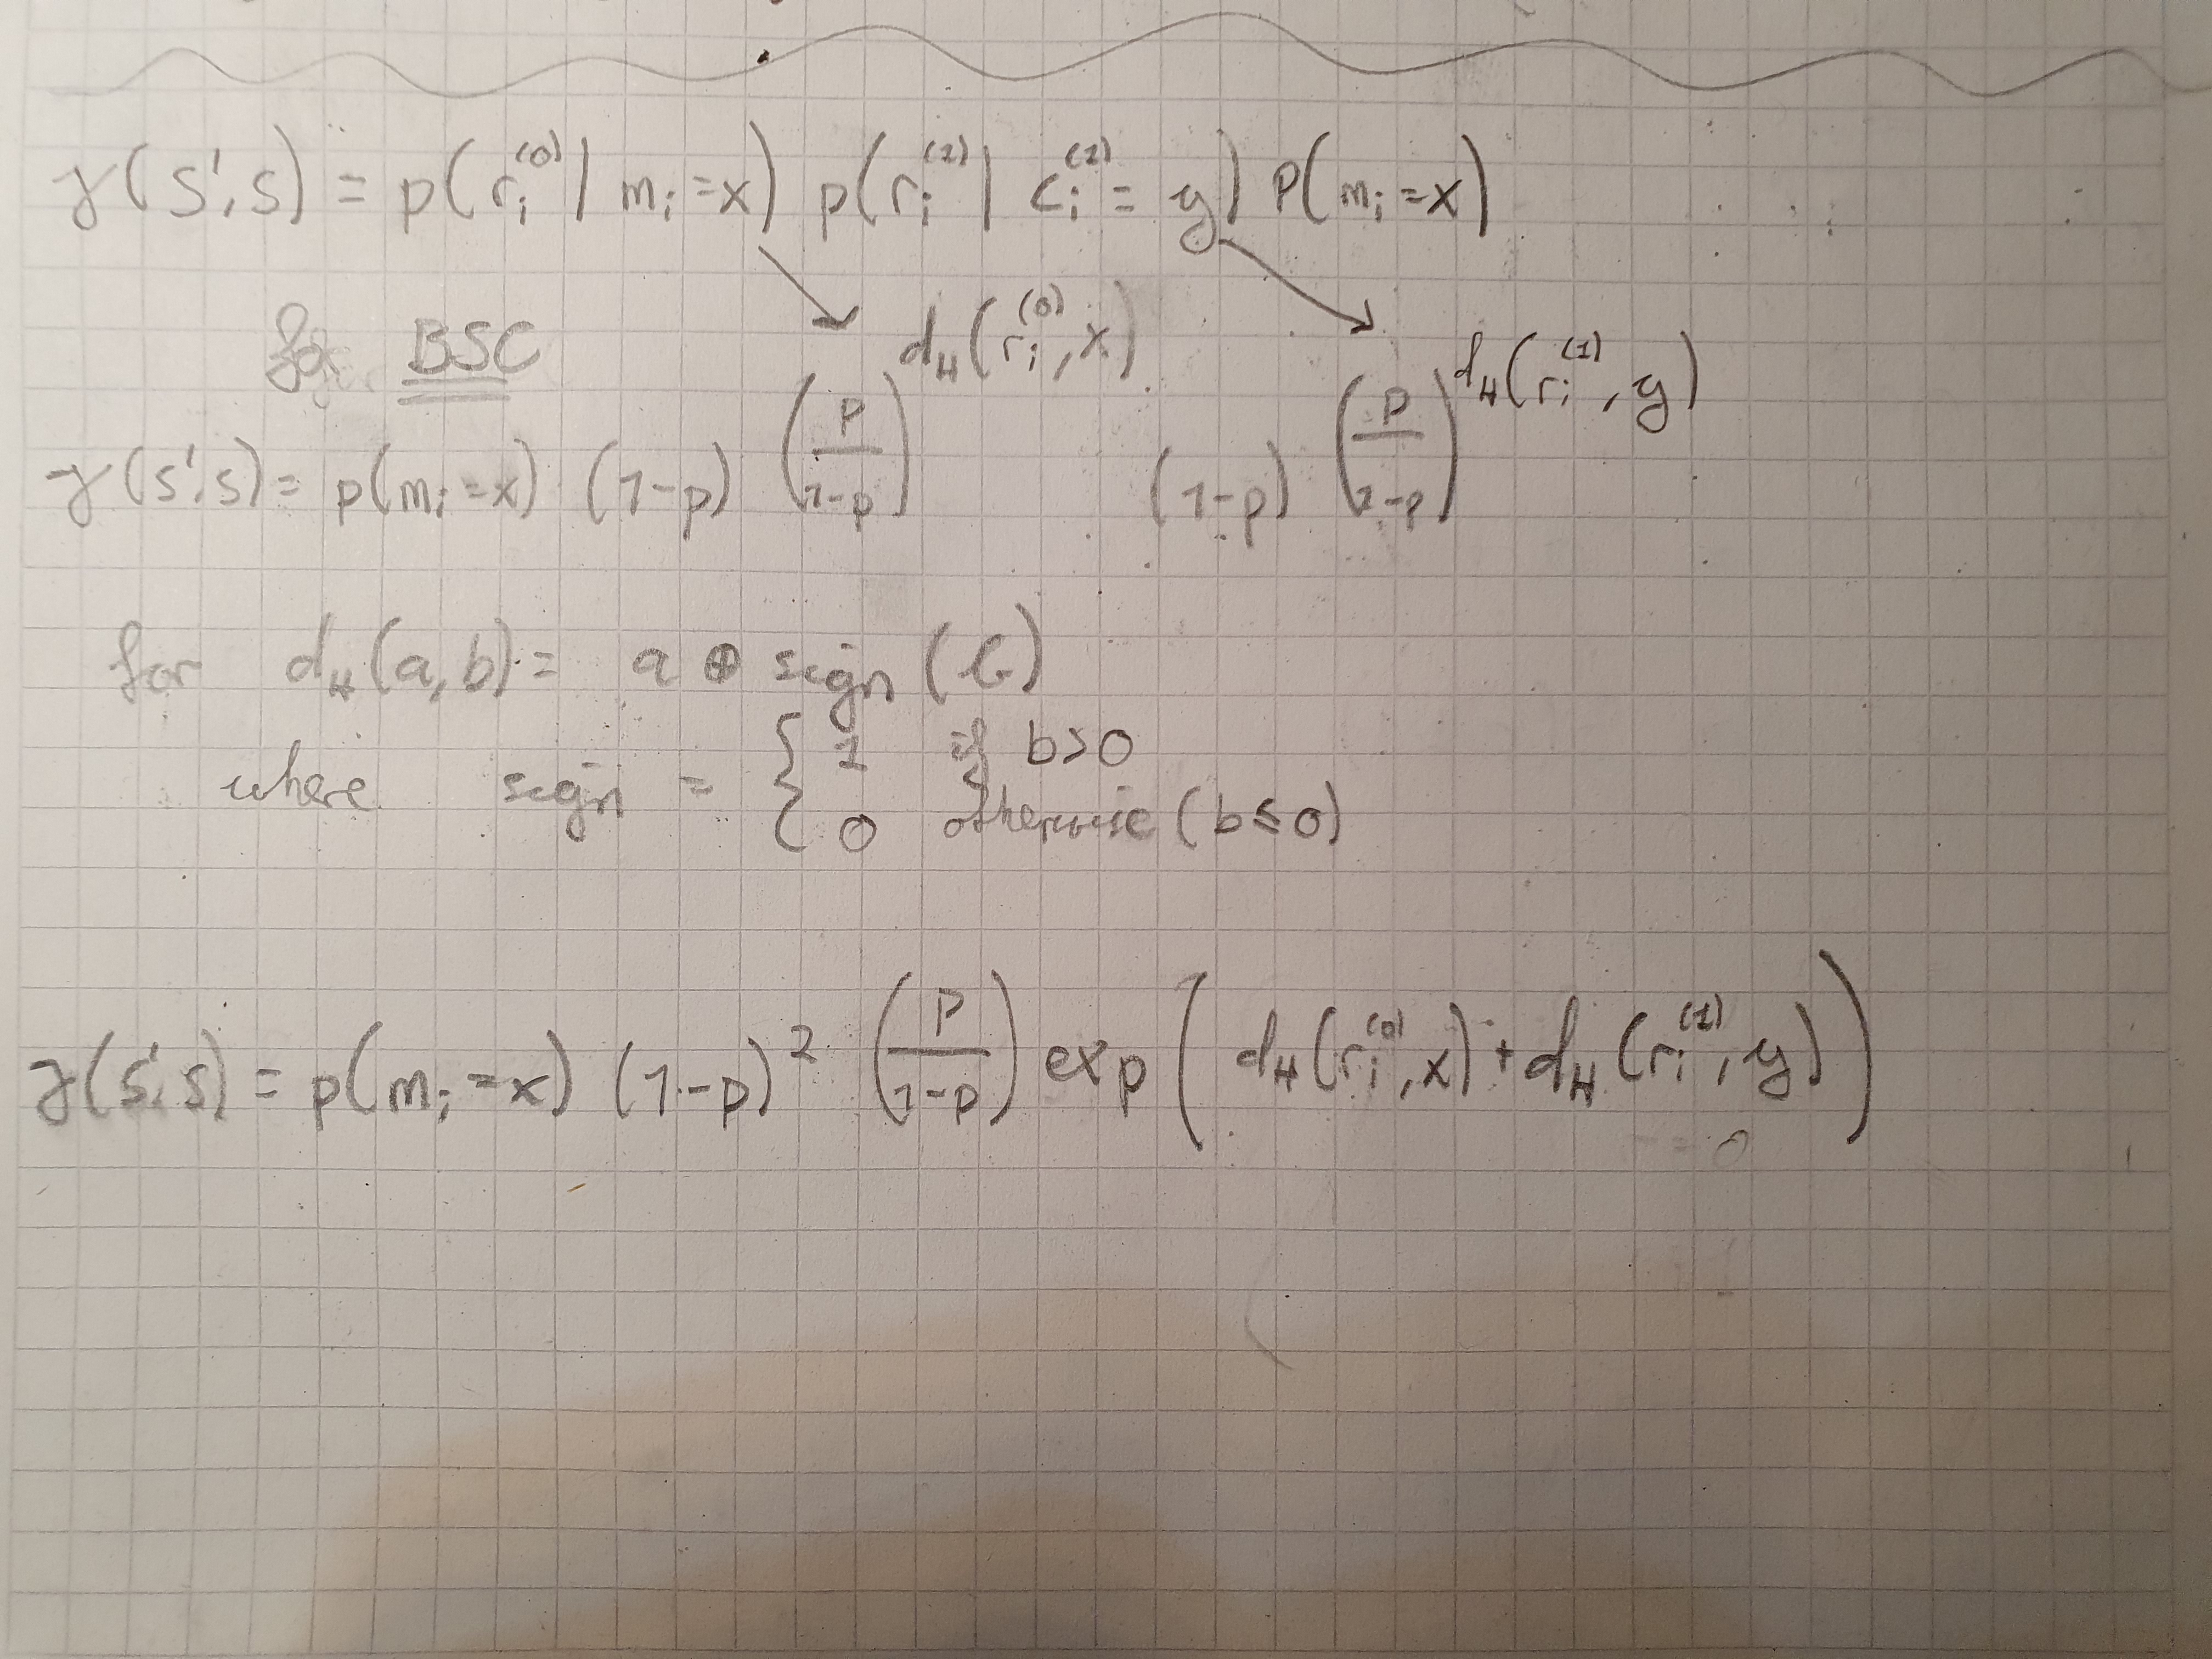 γ(s',s) = p(r_i^(0) | m_i = x) p(r_i^(1) | c_i^(1) = y) P(m_i = x)
for BSC
γ(s',s) = p(m_i = x) (1-p) (p/(1-p))^d_H(r_i^(0), x) (1-p) (p/(1-p))^d_H(r_i^(1), y)
for d_H(a,b) = a ⊕ sign(b)
where sign = { 1 if b>0
0 otherwise (b≤0)
γ(s',s) = p(m_i = x) (1-p)^2 (p/(1-p)) exp( d_H(r_i^(0), x) + d_H(r_i^(1), y) )